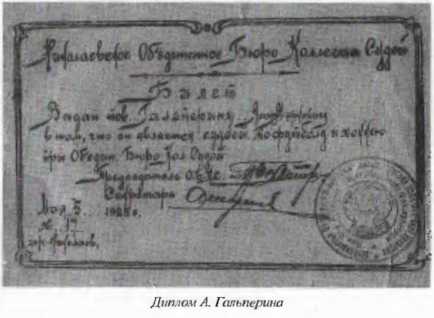 Николаевское Объединенное Бюро Коллегии Судей
Билет
Выдан тов. Гальперину
в том, что он является судьей по футболу и хоккею
при Объедин. Бюро Кол. Судей
Председатель
Секретарь
Мая 5 1928 г.
№ 17
гор. Николаев.
Диплом А. Гальперина